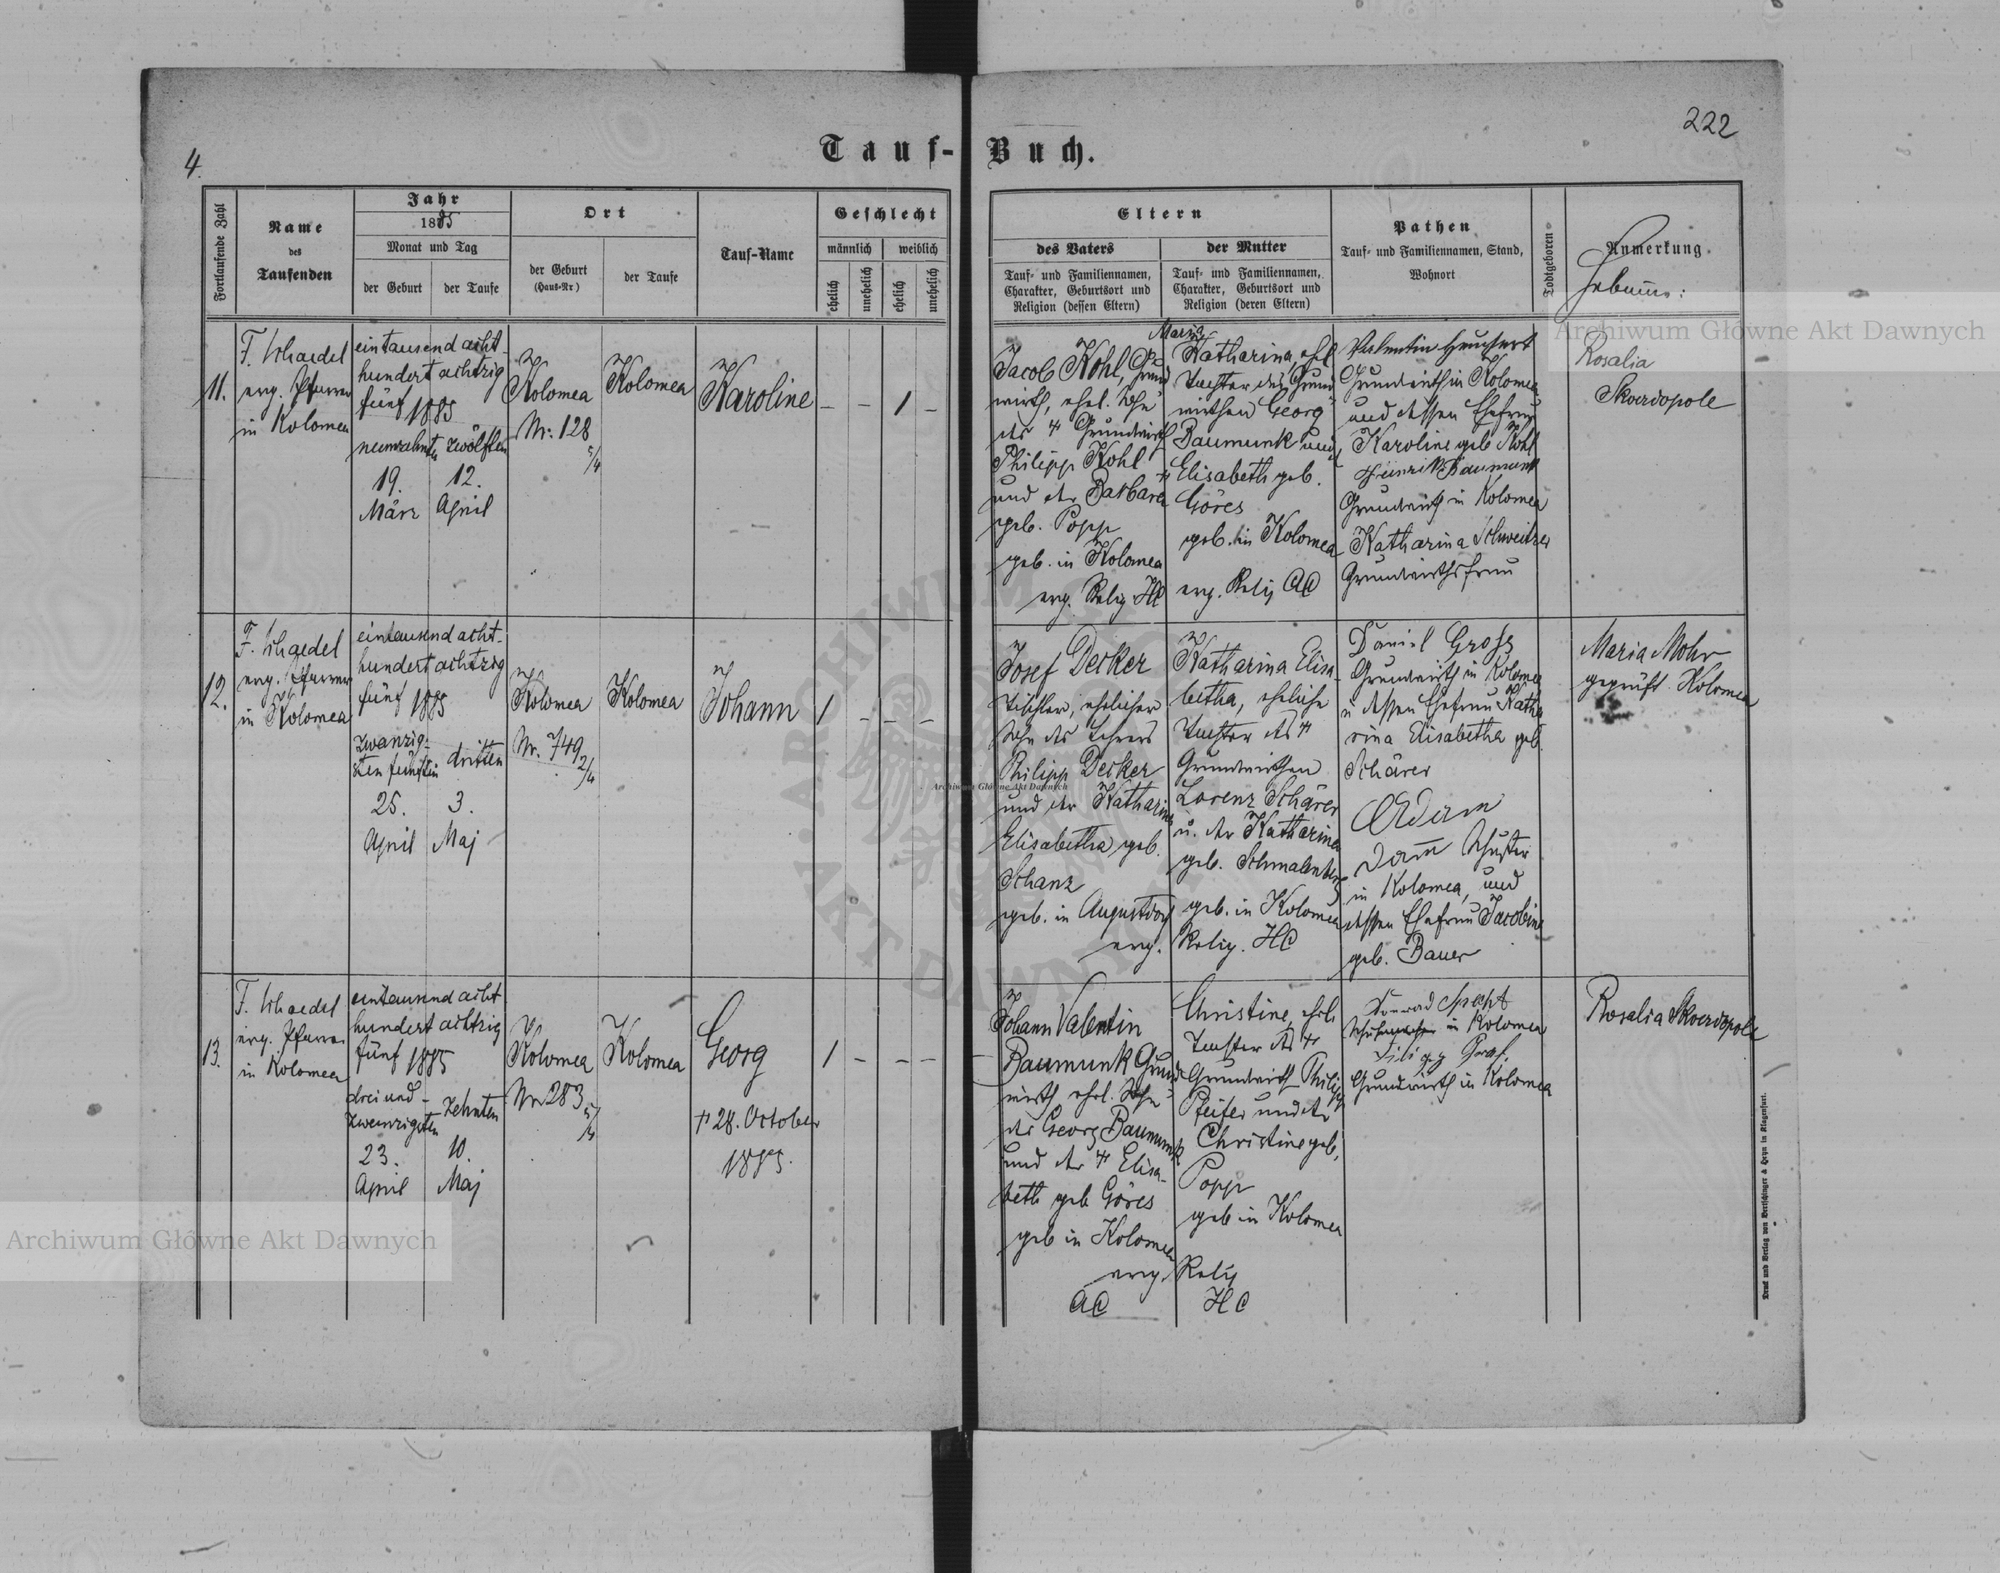 222
4.
Tauf-Buch.
Fortlaufende Zahl
Name
des
Taufenden
Jahr
1885
Monat und Tag
der Geburt
der Taufe
Ort
der Geburt
(Haus-Nr.)
der Taufe
Tauf-Name
Geschlecht
männlich
weiblich
ehelich
unehelich
ehelich
unehelich
Eltern
des Vaters
Tauf- und Familiennamen,
Charakter, Geburtsort und
Religion (dessen Eltern)
der Mutter
Tauf- und Familiennamen,
Charakter, Geburtsort und
Religion (deren Eltern)
Pathen
Tauf- und Familiennamen, Stand,
Wohnort
Todtgeboren
Anmerkung.
Hebamme:
11.
F. Schaedel
evg. Pfarrer
in Kolomea
eintausend acht-
hundert achtzig
fünf 1885
neunzehnten
19.
März
zwölften
12.
April
Kolomea
Nr. 128
5/4
Kolomea
Karoline
– – 1 –
Jacob Kohl, Grund
wirth, ehel. Sohn
des † Grundwirth
Philipp Kohl
und der Barbara
geb. Popp
geb. in Kolomea
evg. Relig HC
Maria
Katharina, ehel
Tochter des Grund
wirthen Georg
Baumunk und
† Elisabeth geb.
Göres
geb. in Kolomea
evg. Relig AC
Valentin Heuchert
Grundwirth in Kolomea
und dessen Ehefrau
Karoline geb Kohl
Heinrich Baumunk
Grundwirth in Kolomea
Katharina Schweitzer
Grundwirthsfrau
Rosalia
Skordopole
12.
F. Schaedel
evg. Pfarrer
in Kolomea
eintausend acht-
hundert achtzig
fünf 1885
zwanzig-
sten fünften
25.
April
dritten
3.
Maj
Kolomea
Nr. 749
2/4
Kolomea
Johann
1 – – –
Josef Decker
Tischler, ehelicher
Sohn des Lehrers
Philipp Decker
und der Katharina
Elisabetha geb.
Schanz
geb. in Augustdorf
evg.
Katharina Elisa-
betha, eheliche
Tochter des †
Grundwirthen
Lorenz Schärer
u. der Katharina
geb. Schmalenberg
geb. in Kolomea
Relig. HC
Daniel Gross
Grundwirth in Kolomea
u dessen Ehefrau Katha
rina Elisabetha geb.
Schärer
Adam
Dam Schuster
in Kolomea, und
dessen Ehefrau Jacobine
geb. Bauer
Maria Mohr
geprüft Kolomea
13.
F. Schaedel
evg. Pfarrer
in Kolomea
eintausend acht
hundert achtzig
fünf 1885
drei und-
zwanzigsten
23.
April
zehnten
10.
Maj
Kolomea
Nr 283
5/4
Kolomea
Georg
† 28. October
1885.
1 – – –
Johann Valentin
Baumunk Grund
wirth ehel. Sohn
des Georg Baumunk
und der † Elisa-
beth geb Göres
geb in Kolomea
evg.
AC
Christine, ehel.
Tochter des †
Grundwirth Philipp
Pfeifer und der
Christine geb.
Popp
geb in Kolomea
Relig
HC
Konrad Specht
in Kolomea
Filipp Graf.
Grundwirth in Kolomea
Rosalia Skordopole
Druck und Verlag von Bertschinger & Heyn in Klagenfurt.
Archiwum Główne Akt Dawnych
Archiwum Główne Akt Dawnych
Archiwum Główne Akt Dawnych
ARCHIWUM
AKT DAWNYCH